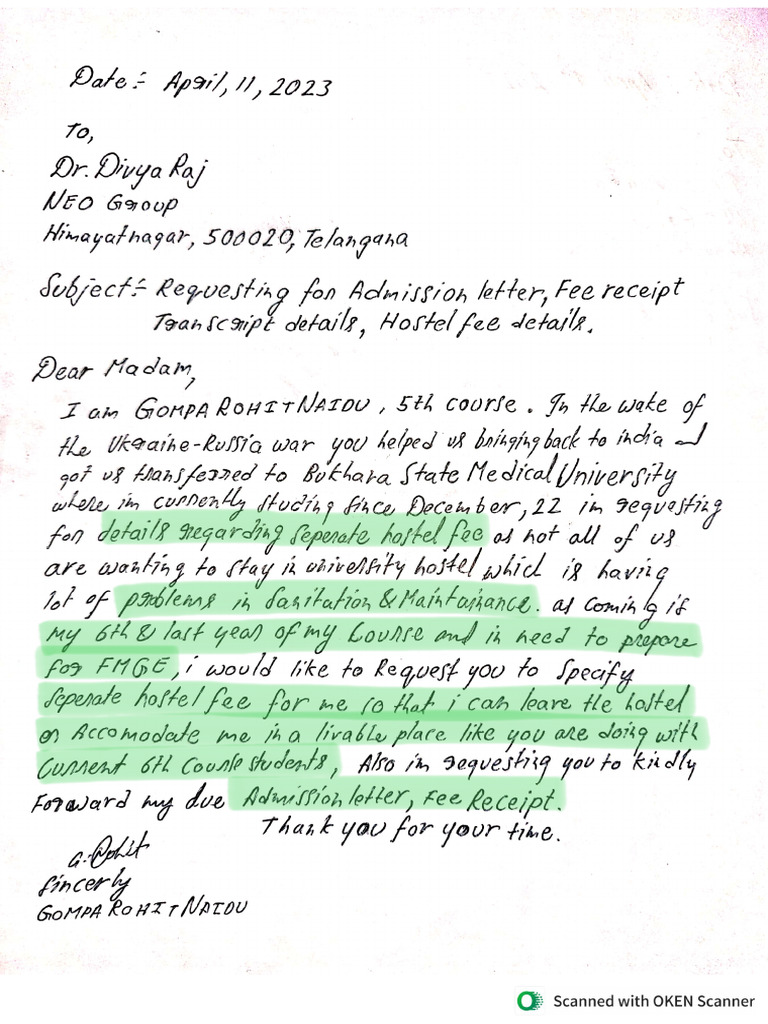 Date :- April, 11, 2023
To,
Dr. Divya Raj
NEO Group
Himayatnagar, 500020, Telangana
Subject :- Requesting for Admission letter, Fee receipt
Transcript details, Hostel fee details.
Dear Madam,
I am GOMPA ROHIT NAIDU, 5th course. In the wake of
the Ukraine-Russia war you helped us bringing back to india and
got us transferred to Bukhara State Medical University
where im currently studing since December, 22 im requesting
for details regarding seperate hostel fee as not all of us
are wanting to stay in university hostel which is having
lot of problems in Sanitation & Maintainance. as coming is
my 6th & last year of my Course and in need to prepare
for FMGE, i would like to Request you to specify
seperate hostel fee for me so that i can leave the hostel
or Accomodate me in a livable place like you are doing with
current 6th Course students, Also im requesting you to kindly
Forward my due Admission letter, Fee Receipt.
Thank you for your time.
G. Rohit
Sincerly
GOMPA ROHIT NAIDU
Scanned with OKEN Scanner